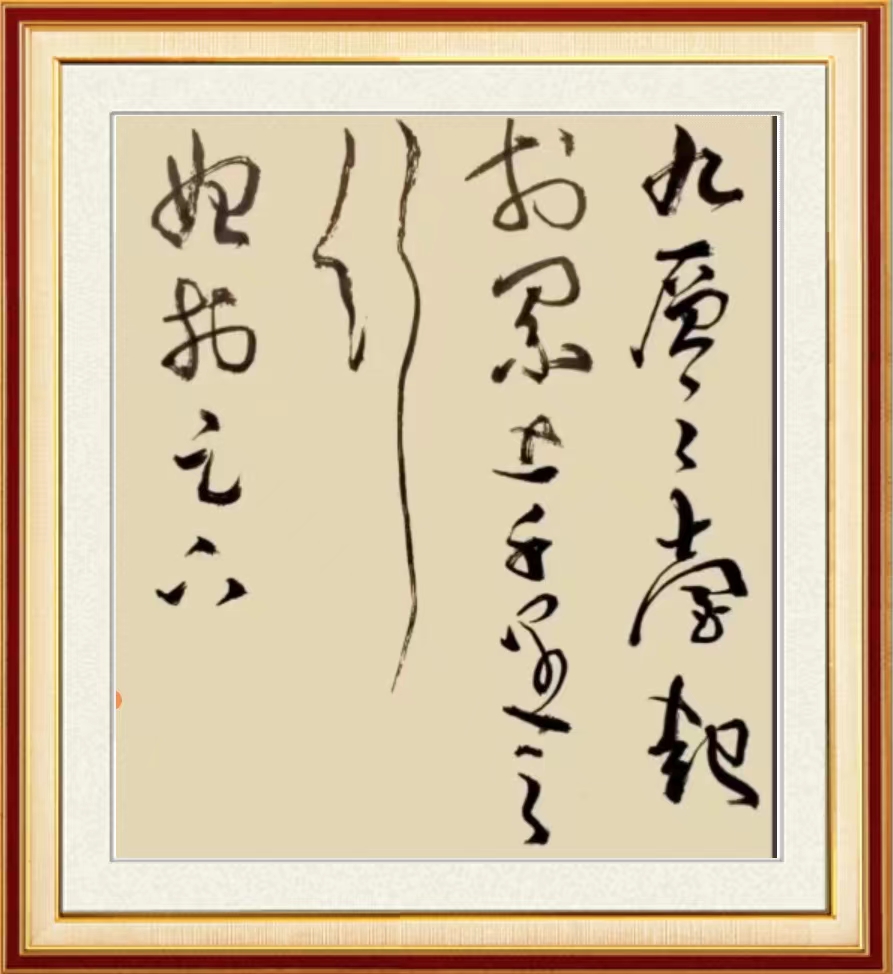 九層之臺起
於累土千里之
行
始於足下